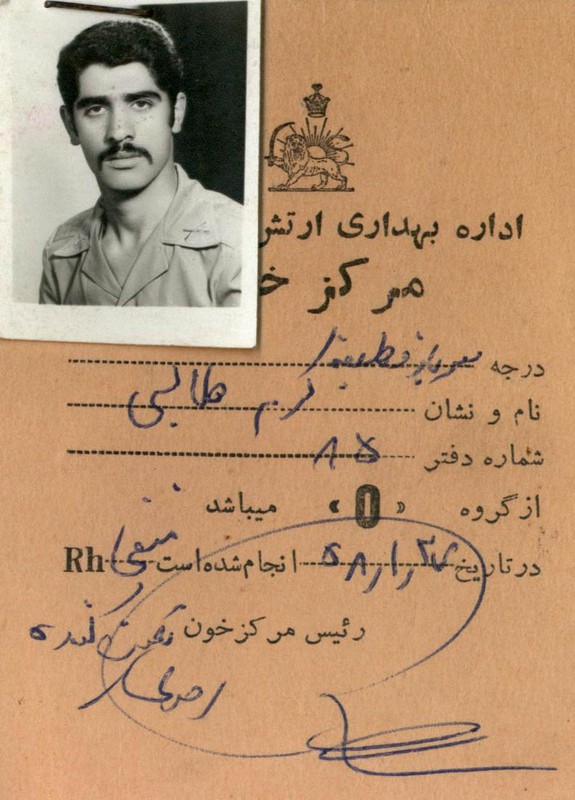 اداره بهداری ارتش
مرکز خ
درجه سرباز وظیفه
نام و نشان کرم طالبی
شماره دفتر ۸۵
از گروه « O » میباشد
در تاریخ ۵۸٫۱٫۲۷ انجام شده است منفی Rh
رئیس مرکز خون